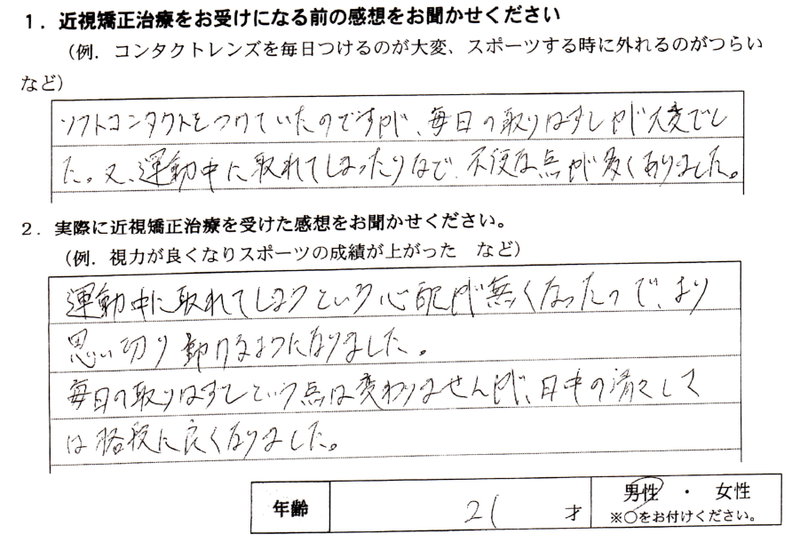 １．近視矯正治療をお受けになる前の感想をお聞かせください
（例．コンタクトレンズを毎日つけるのが大変、スポーツする時に外れるのがつらい
など）
ソフトコンタクトをつけていたのですが、毎日の取りはずしが大変でし
た。又、運動中に取れてしまったりなど、不便な点が多くありました。
２．実際に近視矯正治療を受けた感想をお聞かせください。
（例．視力が良くなりスポーツの成績が上がった　など）
運動中に取れてしまうという心配が無くなったので、より
思い切り動けるようになりました。
毎日の取りはずしという点は変わりませんが、日中の清々しさ
は格段に良くなりました。
年齢　21　才　男性　・　女性
※○をお付けください。